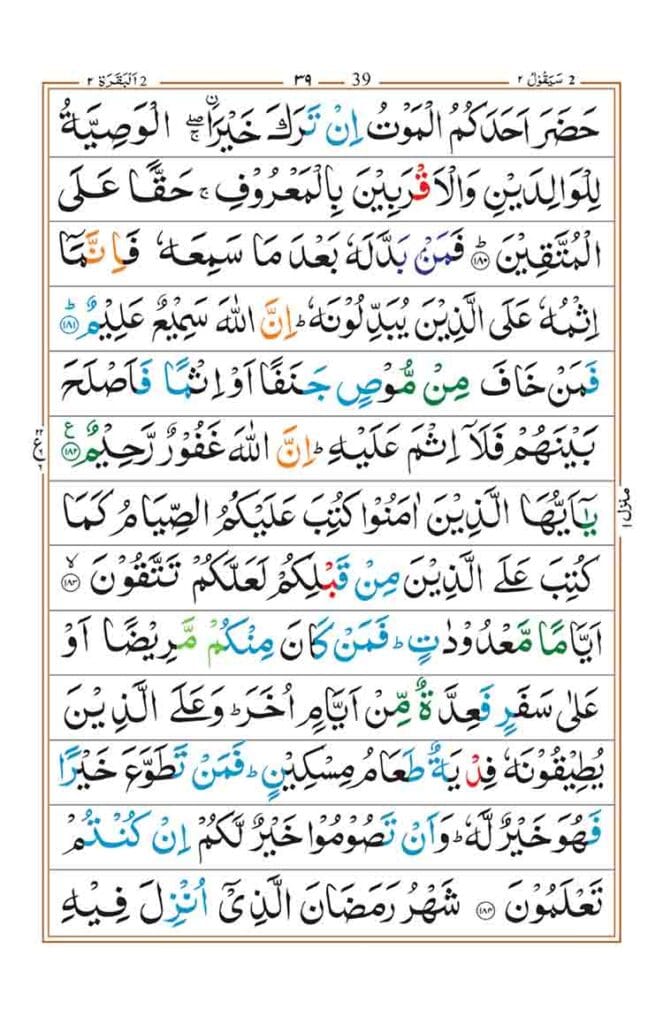 2 اَلْبَقَرَة ٢ ٣٩ 39 سَيَقُوْلُ ٢ 2
حَضَرَ اَحَدَكُمُ الْمَوْتُ اِنْ تَرَكَ خَيْرَاۨ ۖۚ الْوَصِيَّةُ
لِلْوَالِدَيْنِ وَالْاَقْرَبِيْنَ بِالْمَعْرُوْفِ ۚ حَقًّا عَلَى
الْمُتَّقِيْنَ ؕ‏﴿۱۸۰﴾ فَمَنْۢ بَدَّلَهٗ بَعْدَ مَا سَمِعَهٗ فَاِنَّمَاۤ
اِثْمُهٗ عَلَى الَّذِيْنَ يُبَدِّلُوْنَهٗ ؕ اِنَّ اللّٰهَ سَمِيْعٌ عَلِيْمٌ ؕ‏﴿۱۸۱﴾
فَمَنْ خَافَ مِنْ مُّوْصٍ جَنَفًا اَوْ اِثْمًا فَاَصْلَحَ
بَيْنَهُمْ فَلَاۤ اِثْمَ عَلَيْهِ ؕ اِنَّ اللّٰهَ غَفُوْرٌ رَّحِيْمٌ ﴿۱۸۲﴾ ع
يٰٓاَيُّهَا الَّذِيْنَ اٰمَنُوْا كُتِبَ عَلَيْکُمُ الصِّيَامُ کَمَا
كُتِبَ عَلَى الَّذِيْنَ مِنْ قَبْلِکُمْ لَعَلَّكُمْ تَتَّقُوْنَ ۙ‏﴿۱۸۳﴾
اَيَّامًا مَّعْدُوْدٰتٍ ؕ فَمَنْ كَانَ مِنْكُمْ مَّرِيْضًا اَوْ
عَلٰى سَفَرٍ فَعِدَّةٌ مِّنْ اَيَّامٍ اُخَرَ ؕ وَعَلَى الَّذِيْنَ
يُطِيْقُوْنَهٗ فِدْيَةٌ طَعَامُ مِسْكِيْنٍ ؕ فَمَنْ تَطَوَّعَ خَيْرًا
فَهُوَ خَيْرٌ لَّهٗ ؕ وَاَنْ تَصُوْمُوْا خَيْرٌ لَّکُمْ اِنْ كُنْتُمْ
تَعْلَمُوْنَ ﴿۱۸۴﴾ شَهْرُ رَمَضَانَ الَّذِىْٓ اُنْزِلَ فِيْهِ
منزل ١